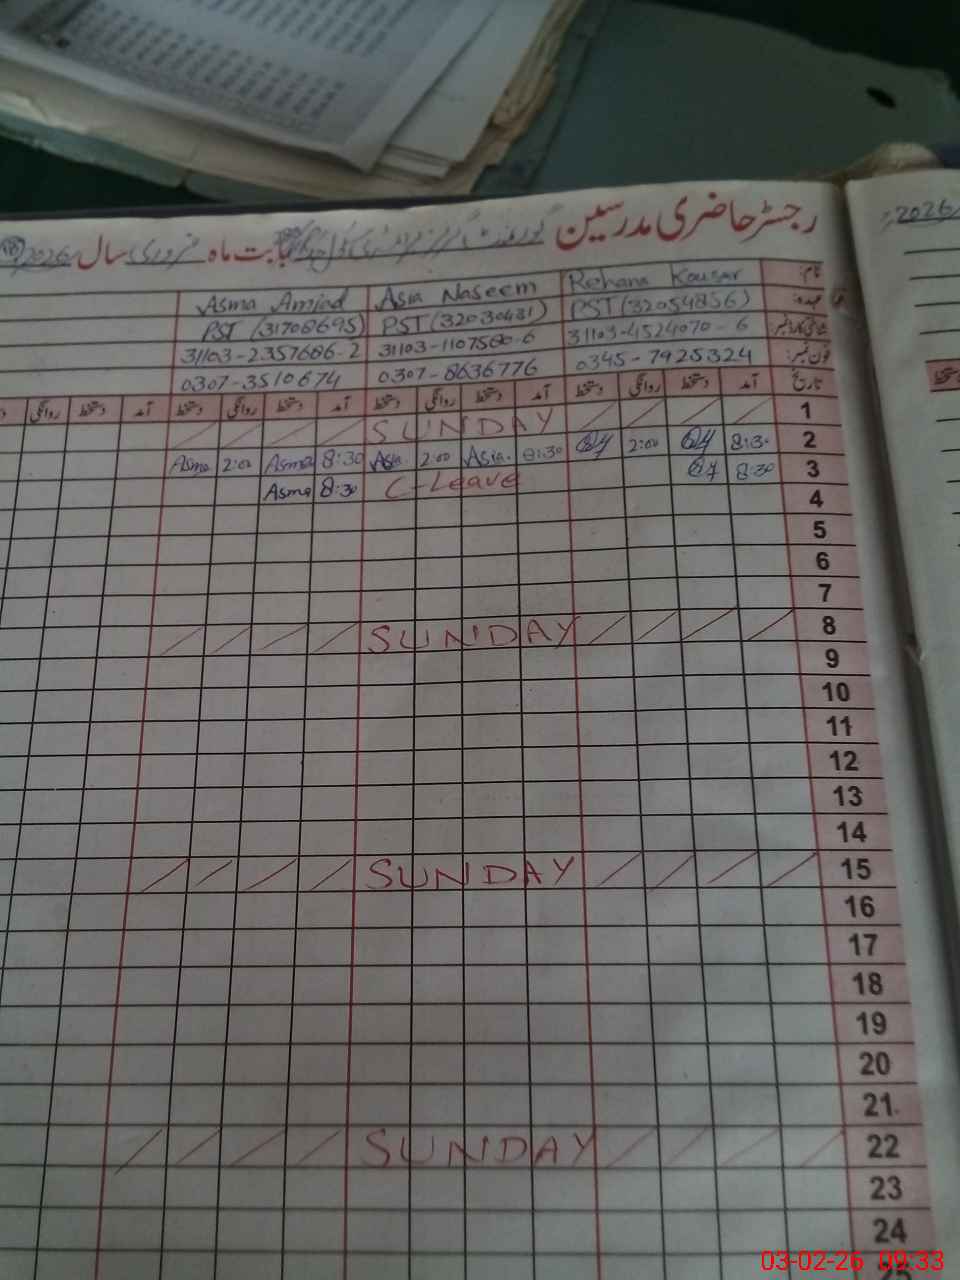 رجسٹر حاضری مدرسین گورنمنٹ گرلز پرائمری سکول بابت ماہ فروری سال 2026
2026
نام: Rehana Kousar Asia Naseem Asma Amjad
عہدہ: PST (32054856) PST (32030431) PST (31708695)
شناختی کارڈ نمبر: 31103-4524070-6 31103-1107580-6 31103-2357686-2
فون نمبر: 0345-7925324 0307-8636776 0307-3510674
تاریخ آمد دستخط روانگی دستخط آمد دستخط روانگی دستخط آمد دستخط روانگی دستخط آمد دستخط روانگی
1 SUNDAY
2 8:30 2:00 8:30 Asia. 2:00 Asia. 8:30 Asma 2:00 Asma
3 8:30 C-Leave 8:30 Asma
4
5
6
7
8 SUNDAY
9
10
11
12
13
14
15 SUNDAY
16
17
18
19
20
21
22 SUNDAY
23
24
25
03-02-26 09:33